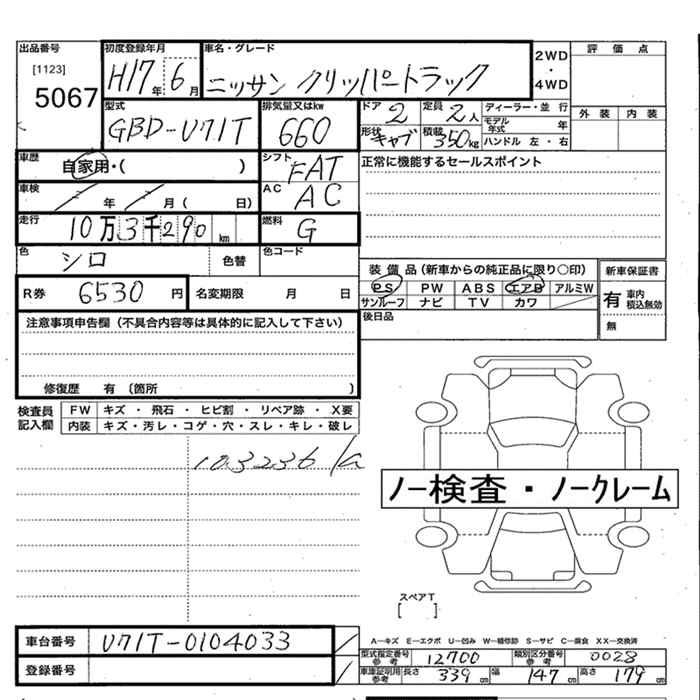 出品番号
[1123]
5067
初度登録年月
H17年6月
車名・グレード
ニッサン クリッパートラック
2WD
・
4WD
評価点
外装 内装
型式
GBD-U71T
排気量又はkw
660
ドア 2
定員 2人
形状 キャブ
積載 350kg
ディーラー・並行
モデル年式 年
ハンドル 左・右
車歴
自家用・( )
シフト FAT
正常に機能するセールスポイント
車検
年 月( 日)
AC AC
走行
10万3千290km
燃料 G
色
シロ
色替
色コード
R券 6530円
名変期限 月 日
装備品(新車からの純正品に限り○印)
PS PW ABS エアB アルミW
サンルーフ ナビ TV カワ
新車保証書
有 車内積込無効
無
後日品
注意事項申告欄(不具合内容等は具体的に記入して下さい)
修復歴 有(箇所 )
検査員記入欄
FW キズ・飛石・ヒビ割・リペア跡・X要
内装 キズ・汚レ・コゲ・穴・スレ・キレ・破レ
103236
ノー検査・ノークレーム
スペアT
[ ]
車台番号 U71T-0104033
登録番号
A―キズ E―エクボ U―凹み W―補修跡 S―サビ C―腐食 XX―交換済
型式指定番号 参考 12700
類別区分番号 参考 0028
車庫証明用 参考 長さ 339cm 幅 147cm 高さ 179cm